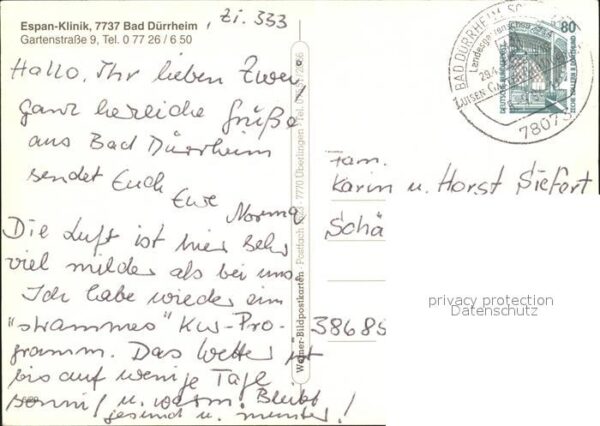 Espan-Klinik, 7737 Bad Dürrheim
Gartenstraße 9, Tel. 0 77 26 / 6 50
Zi. 333
Hallo, Ihr lieben Zwei,
ganz herzliche Grüße
aus Bad Dürrheim
sendet Euch
Eure Norma
Die Luft ist hier sehr
viel milder als bei uns
Ich habe wieder ein
"strammes" Kur-Pro-
gramm. Das Wetter ist
bis auf wenige Tage
sonnig u. warm. Bleibt
gesund u. munter!
Werner-Bildpostkarten · Postfach · 7770 Überlingen · Tel.
BAD DÜRRHEIM
Landesgartenschau
LUISEN
78073
80
DEUTSCHE BUNDESPOST
Fam.
Karin u. Horst Siefert
Schä
38685
privacy protection
Datenschutz